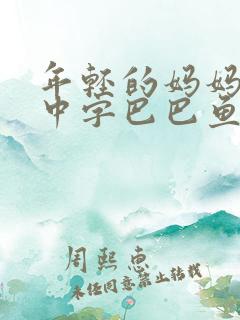 年轻的妈妈
中字巴巴鱼
周熙惠
未经同意禁止转载